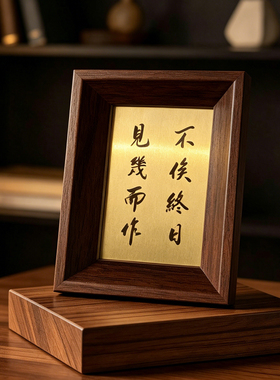 不俟終日
見幾而作